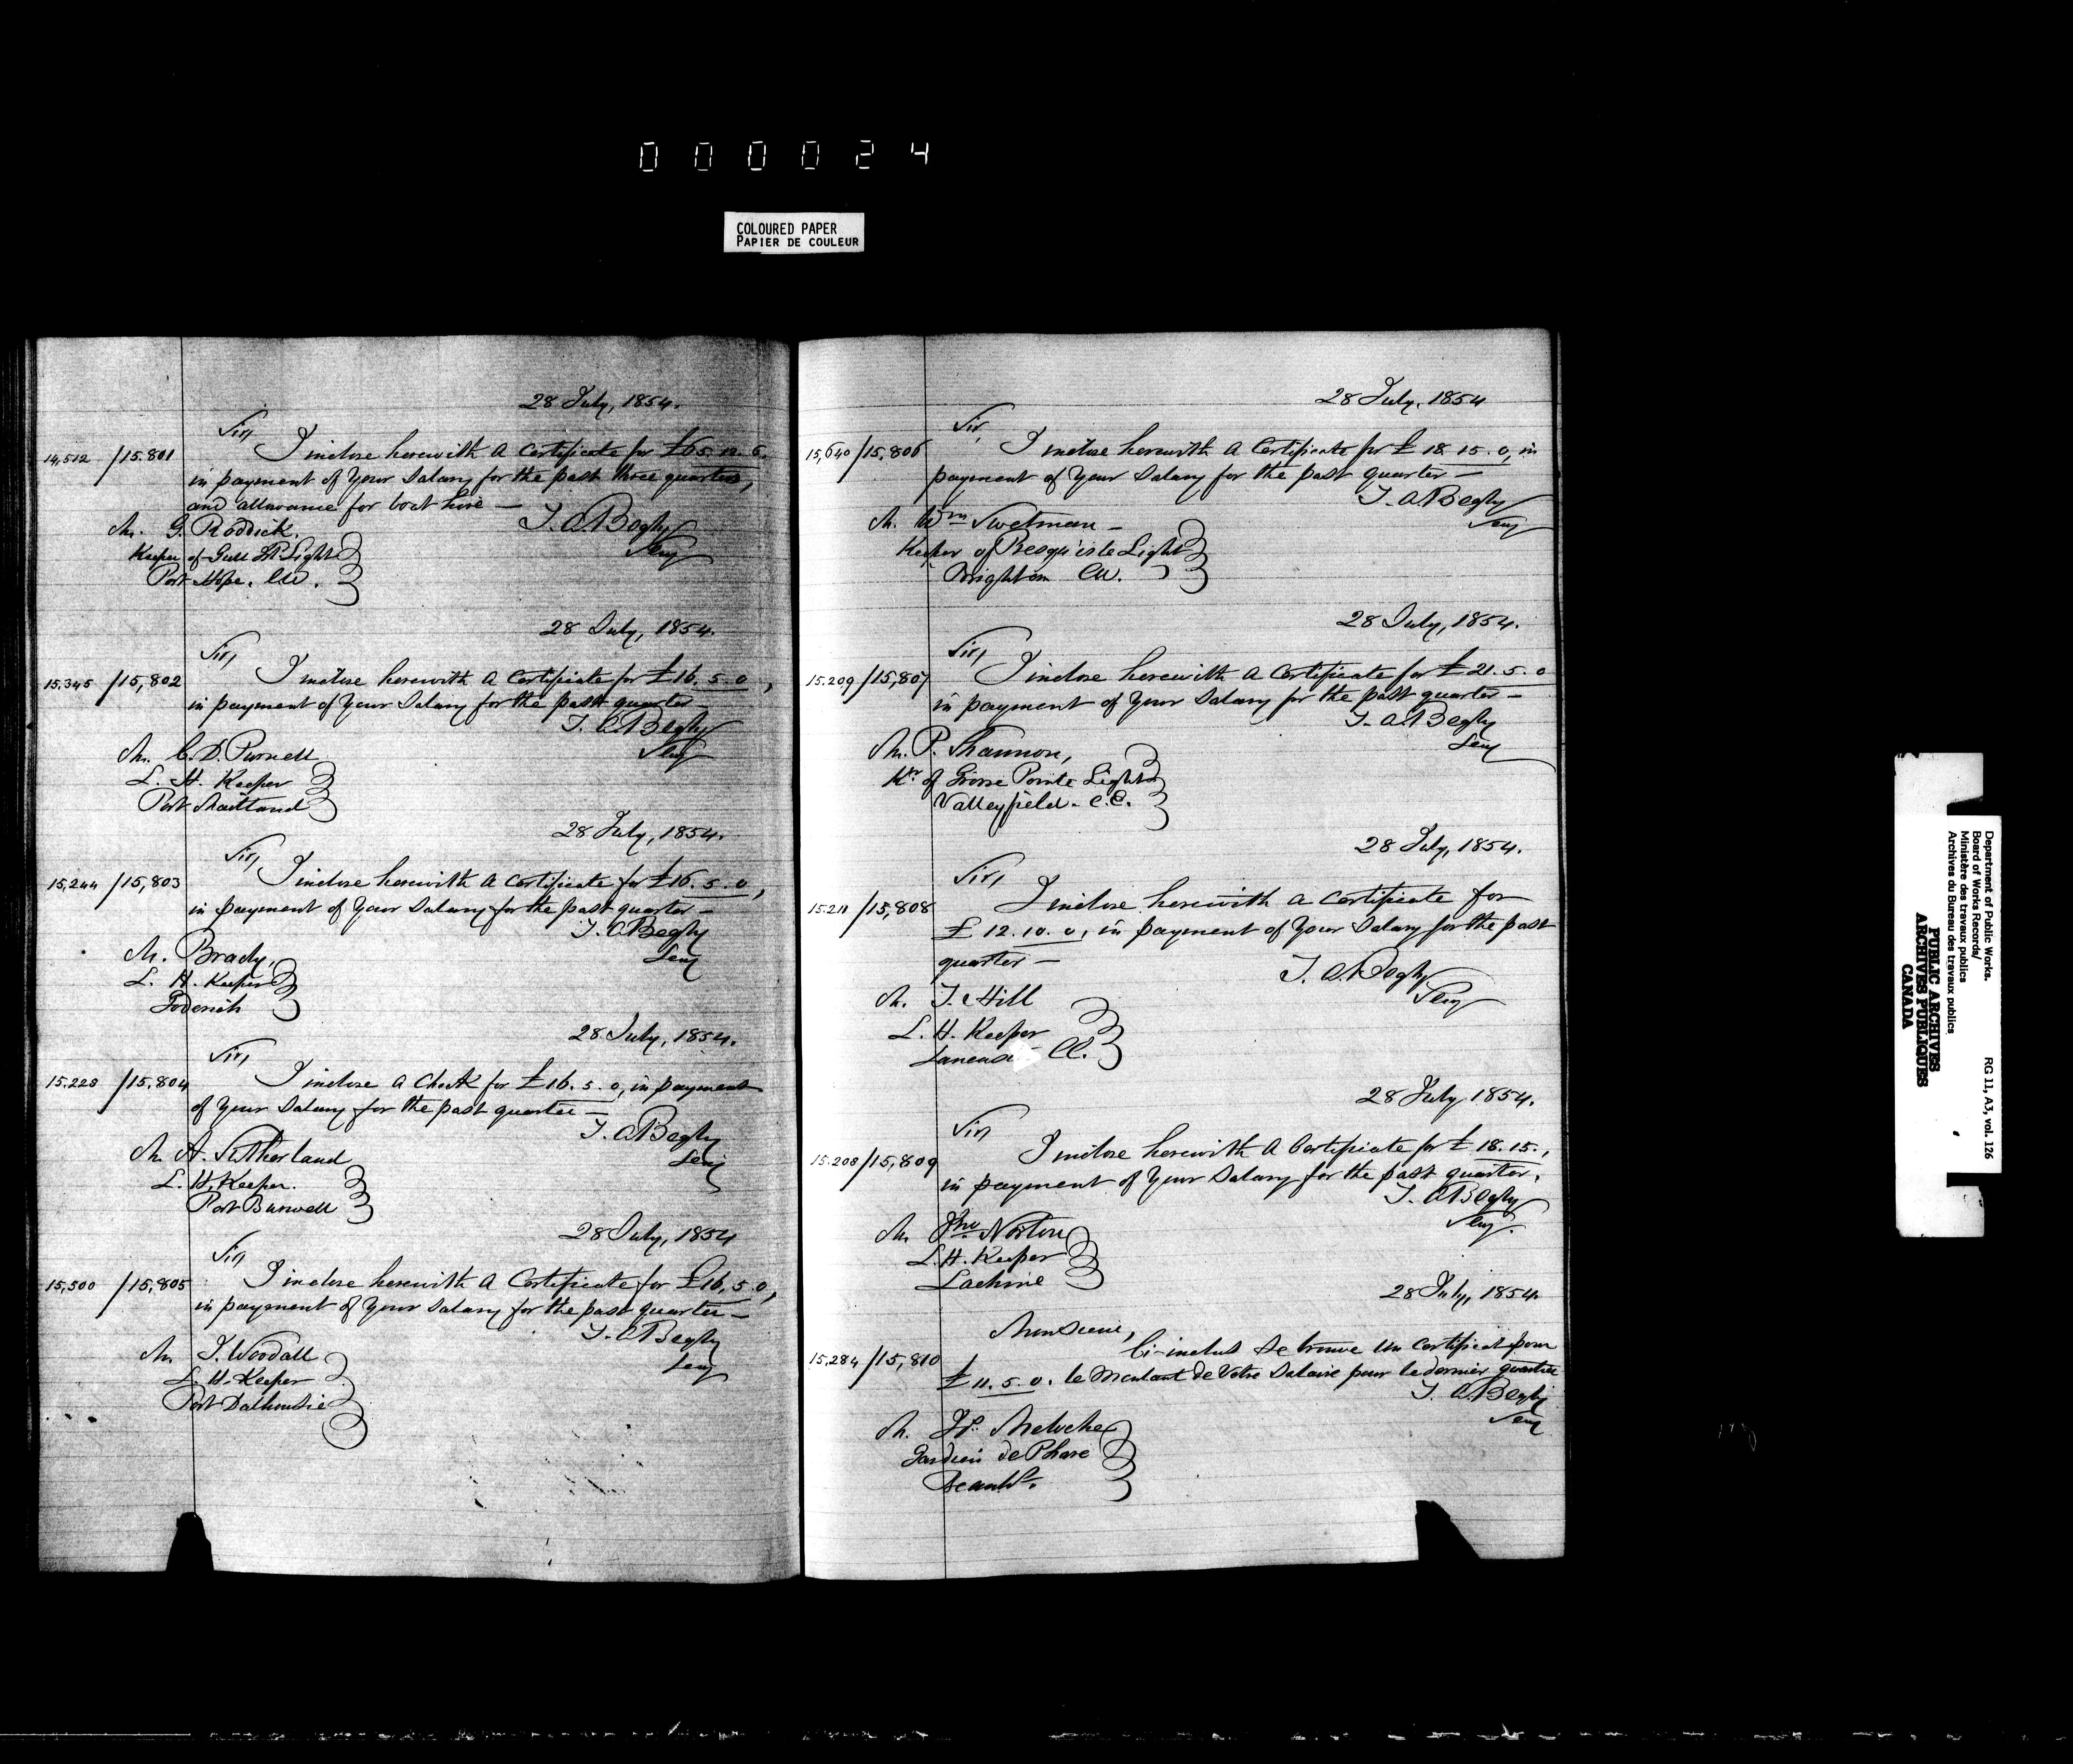 000024
COLOURED PAPER
PAPIER DE COULEUR
28 July, 1854.
Sir,
14,512 /15.801 I inclose herewith a Certificate for £65.12.6.
in payment of Your Salary for the past three quarters,
and allowance for boat hire —
T. A. Begly
Secy
Mr. G. Roddick.
Keeper of Gull Id Light
Port Hope. CW.
28 July, 1854.
Sir,
15.345 /15,802 I inclose herewith a Certificate for £16.5.0,
in payment of Your Salary for the past quarter —
T. A. Begly
Secy
Mr. C. D. Purnell
L. H. Keeper
Port Maitland
28 July, 1854.
Sir,
15,244 /15,803 I inclose herewith a Certificate for £16.5.0,
in payment of Your Salary for the past quarter —
T. A. Begly
Secy
Mr. Brady,
L. H. Keeper
Goderich
28 July, 1854.
Sir,
15.228 /15.804 I inclose a Check for £16.5.0, in payment
of Your Salary for the past quarter —
T. A. Begly
Secy
Mr A. Sutherland
L. H. Keeper.
Port Burwell
28 July, 1854
Sir,
15,500 /15,805 I inclose herewith a Certificate for £16,5.0,
in payment of Your Salary for the past quarter —
T. A. Begly
Secy
Mr J. Woodall
L. H. Keeper
Port Dalhousie
28 July, 1854
Sir,
15,640 /15,806 I inclose herewith a Certificate for £18.15.0, in
payment of Your Salary for the past quarter —
T. A. Begly
Secy
Mr. Wm Swetman —
Keeper of Presqu'isle Light
Brighton CW.
28 July, 1854.
Sir,
15.209 /15,807 I inclose herewith a Certificate for £21.5.0
in payment of Your Salary for the past quarter —
T. A. Begly
Secy
Mr. P. Shannon,
Kr. of Grosse Pointe Light
Valleyfield. C.E.
28 July, 1854.
Sir,
15.211 /15,808 I inclose herewith a Certificate for
£12.10.0, in payment of Your Salary for the past
quarter —
T. A. Begly
Secy
Mr. J. Hill
L. H. Keeper
28 July 1854.
Sir,
15.208 /15,809 I inclose herewith a Certificate for £18.15.,
in payment of Your Salary for the past quarter.
T. A. Begly
Secy.
Mr Jno Norton
L. H. Keeper
Lachine
28 July, 1854.
Monsieur,
15,284 /15,810 Ci-inclus se trouve un certificat pour
£11.5.0. le Montant de Votre Salaire pour le dernier quartier
T. A. Begly
Secy
Mr. Meloche
Gardien de Phare
Department of Public Works. RG 11, A3, vol. 126
Board of Works Records/
Ministère des travaux publics
Archives du Bureau des travaux publics
PUBLIC ARCHIVES
ARCHIVES PUBLIQUES
CANADA